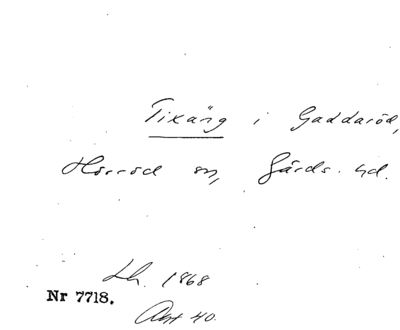 Tixäng i Gaddaröd,
Hörröd sn, Gärds hd.
Lh. 1868
Nr 7718.
Akt 40.